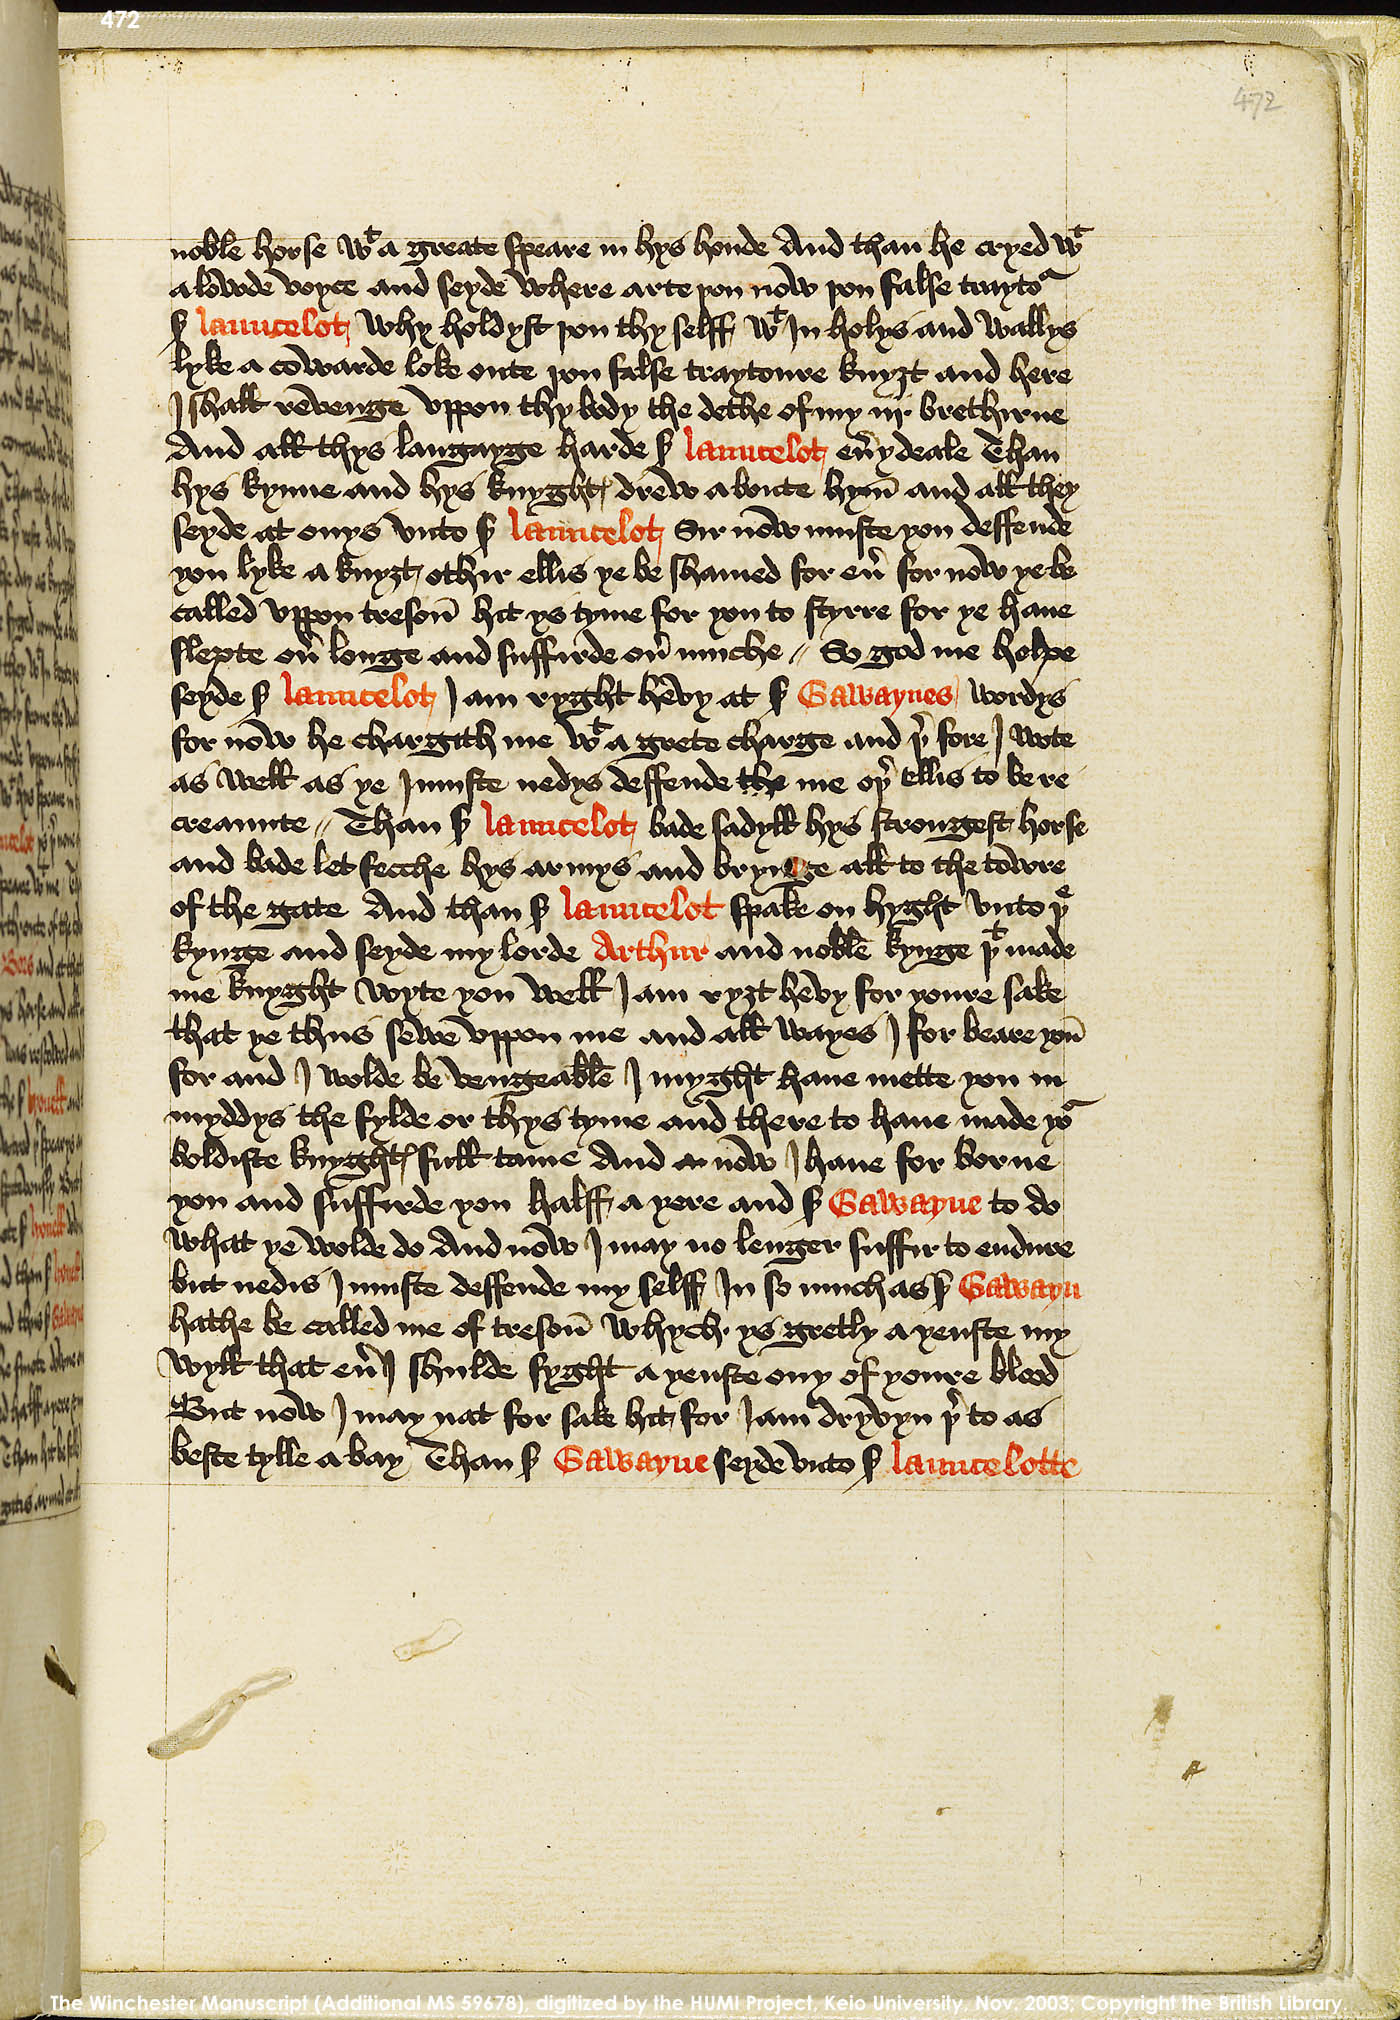 472
472
noble horse wͭ a greate speare in hys honde And than he cryed wͭ
a lowde voyce and seyde where arte þou now þou false traytoʳ
sʳ launcelot why holdyst þou thy selff wͭ In holys and wallys
lyke a cowarde loke oute þou false traytoure knyȝt and here
I shall revenge vppon thy body the dethe of my iij brethirne
And all thys langayge harde sʳ launcelot eu̾y deale Than
hys kynne and hys knyghtꝭ drew aboute hym̄ and all they
seyde at onys vnto sʳ launcelot Sir now muste you deffende
you lyke a knyȝt othir ellis ye be shamed for eu̾ for now ye be
called vppon treson̄ hit ys tyme for you to styrre for ye haue
slepte ou̾ longe and suffirde ou̾ muche // So god me helpe
seyde sʳ launcelot I am ryght hevy at sʳ Gawaynes wordys
for now he chargith me wͭ a grete charge and þ̾ fore I wote
as well as ye I muste nedys deffende the me oþ̾ ellis to be re
creaunte // Than sʳ launcelot bade sadyll hys strongest horse
and bade let fecche hys armys and brynge all to the towre
of the gate And than sʳ launcelot spake on hyght vnto þͤ
kynge and seyde my lorde Arthur and noble kynge þͭ made
me knyght wyte you well I am ryȝt hevy for youre sake
that ye thus sewe vppon me and all wayes I for beare you̅
for and I wolde be vengeable I myght haue mette you in
myddys the fylde or thys tyme and there to haue made yoʳ
boldiste knyghtꝭ full tame And now I haue for borne
you and suffirde you halff a yere and sʳ Gawayne to do
what ye wolde do And now I may no lenger suffir to endure
but nedis I muste deffende my selff In so much as sʳ Gawayn
hathe be called me of treson̄ whych ys gretly a yenste my
wyll that eu̾ I shulde fyght a yenste ony of youre blood
But now I may nat for sake hit for I am dryvyn þ̾ to as
beste tylle a bay Than sʳ Gawayne seyde vnto sʳ launcelotte
The Winchester Manuscript (Additional MS 59678), digitized by the HUMI Project, Keio University, Nov. 2003; Copyright the British Library.